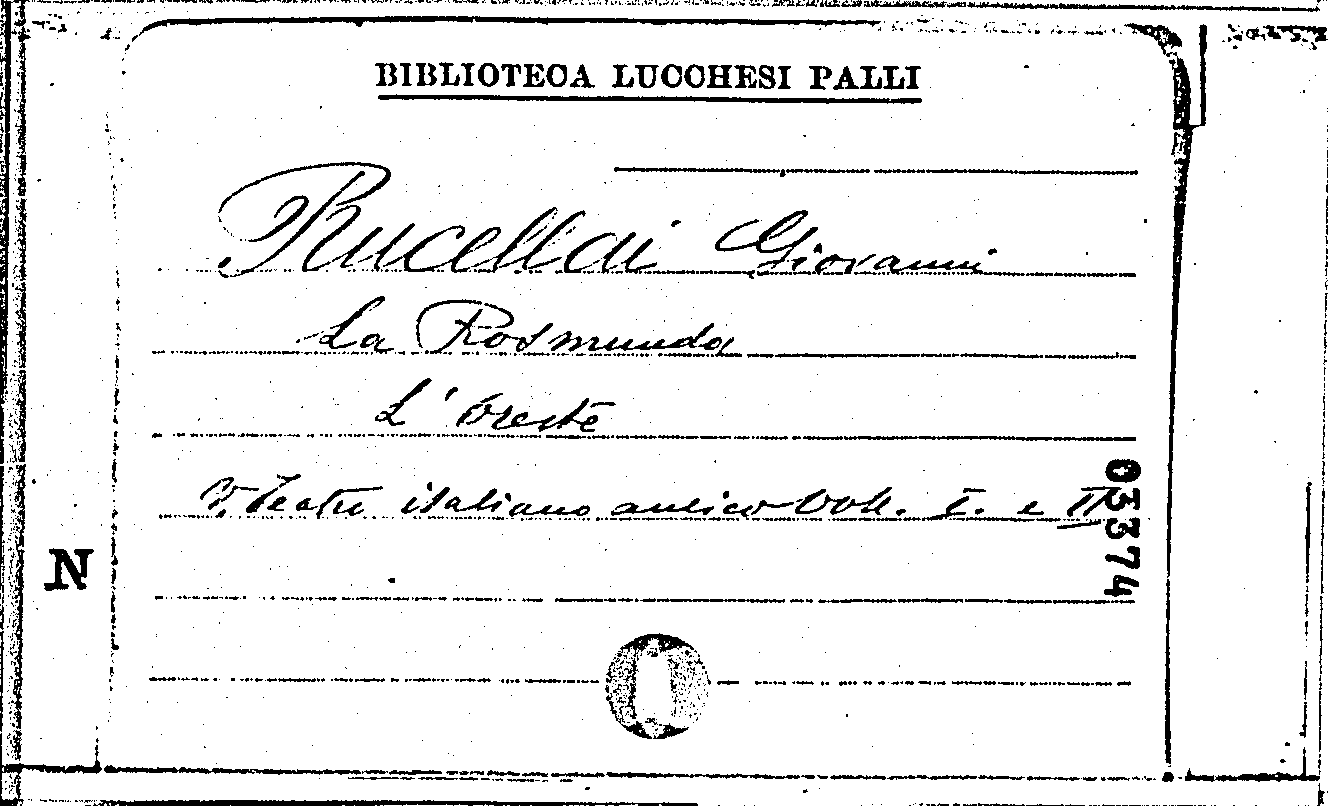 BIBLIOTECA LUCCHESI PALLI
Rucellai Giovanni
La Rosmunda
L'Oreste
V. Teatro italiano antico Voll. I. e II
033374
N